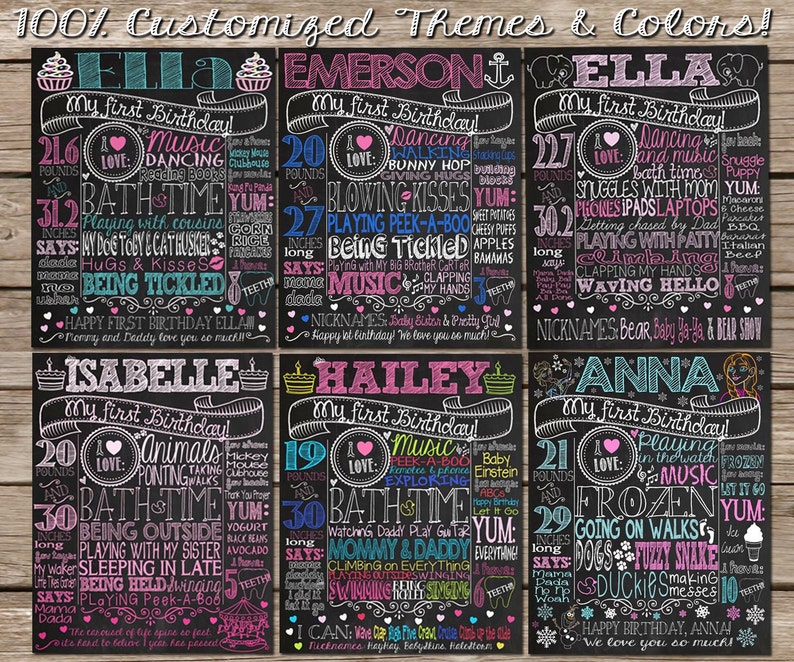 100% Customized Themes & Colors!
Ella
My first Birthday!
21.6
POUNDS
AND
31.2
INCHES
long
SAYS:
dada
mama
no
I LOVE:
Music
DANCING
Reading Books
BATH TIME
Playing with cousins
MY DOG TOBY & CAT HUSKER
Hugs & Kisses
BEING TICKLED
Mickey Mouse
Clubhouse
Kung Fu Panda
YUM:
STRAWBERRIES
CORN
RICE
PANCAKES
I have:
8
TEETH!
HAPPY FIRST BIRTHDAY ELLA!!!
Mommy and Daddy love you so much!!
EMERSON
My first Birthday!
20
POUNDS
AND
27
INCHES
long
SAYS:
mama
dada
I LOVE:
Dancing
WALKING
BUNNY HOP
GIVING HUGS
BLOWING KISSES
PLAYING PEEK-A-BOO
Being Tickled
Playing with MY BIG BROTHER CARTER
MUSIC
CLAPPING
MY HANDS
fav toys:
stacking cups
building
blocks
YUM:
SWEET POTATOES
CHEESY PUFFS
APPLES
BANANAS
I have:
3
TEETH!
NICKNAMES: Baby Sister & Pretty Girl
Happy 1st birthday! We love you so much!
ELLA
My first Birthday!
22.7
POUNDS
AND
30.2
INCHES
long
say:
Mama, Dada
Baby, Hat
Pay-Pay
Da-Da
All Done
I LOVE:
Dancing
and music
bath time
SNUGGLES WITH MOM
PHONES IPADS LAPTOPS
Getting chased by Dad
PLAYING WITH PATTY
climbing
CLAPPING MY HANDS
WAVING HELLO
fav book:
Snuggle
Puppy
YUM:
Macaroni
& Cheese
Pancakes
BBQ
Chicken
Italian
Beef
I have:
TEETH!
NICKNAMES: Bear, Baby Ya-Ya, & BEAR SHOW
ISABELLE
My first Birthday!
20
POUNDS
AND
30
INCHES
long
fav toys:
My Walker
Little Tikes Garden
SAYS:
Mama
Dada
I LOVE:
Animals
POINTING
TAKING
WALKS
BATH TIME
BEING OUTSIDE
PLAYING WITH MY SISTER
SLEEPING IN LATE
BEING HELD Swinging
PLAYING PEEK-A-BOO
fav shows:
Mickey
Mouse
Clubhouse
Thank You Prayer
YUM:
YOGURT
BLACK BEANS
AVOCADO
I have:
5
TEETH!
The carousel of life spins so fast,
it's hard to believe 1 year has passed
HAILEY
My first Birthday!
19
POUNDS
AND
30
INCHES
long
SAYS:
I did it
I got it
I LOVE:
Music
PEEK-A-BOO
Remotes & phones
EXPLORING
BATH TIME
Watching Daddy Play Guitar
MOMMY & DADDY
CLIMBING on EVERYTHING
PLAYING OUTSIDE SWINGING
SWIMMING
SINGING
Baby
Einstein
ABCs
Happy Birthday
Let It Go
YUM:
EVERYTHING!
I have:
6
TEETH!
I CAN: Wave, Clap, High Five, Crawl, Cruise, Climb up the slide
Nicknames: HayHay, BabyGkins, HaleStorm
ANNA
My first Birthday!
21
POUNDS
AND
29
INCHES
long
SAYS:
Mama
Dada
No No
Woah
I LOVE:
Playing
in the water
MUSIC
FROZEN
GOING ON WALKS
DOGS
FUZZY SNAKE
Duckies
making
messes
fav movie:
FROZEN
LET IT GO
YUM:
Ice
Cream
I have:
10
TEETH!
HAPPY BIRTHDAY, ANNA!
We love you so much!